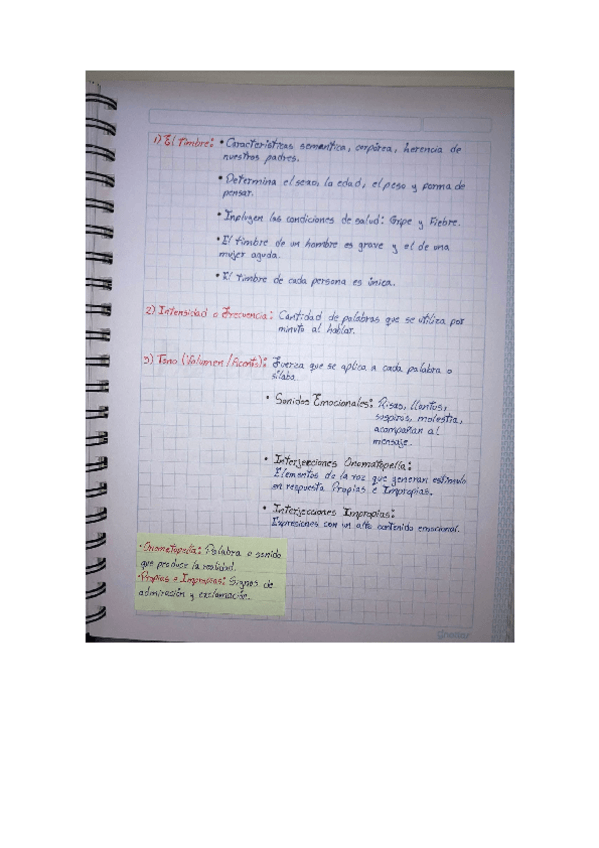 1) El Timbre: • Características semantica, corpórea, herencia de
nuestros padres.
• Determina el sexo, la edad, el peso y forma de
pensar.
• Influyen las condiciones de salud: Gripe y Fiebre.
• El timbre de un hombre es grave y el de una
mujer aguda.
• El timbre de cada persona es única.
2) Intensidad o Frecuencia: Cantidad de palabras que se utiliza por
minuto al hablar.
3) Tono (Volumen / Acento): Fuerza que se aplica a cada palabra o
sílaba.
• Sonidos Emocionales: Risas, llantos,
suspiros, molestia,
acompañan al
mensaje.
• Interjecciones Onomatopella:
Elementos de la voz que generan estimulo
en respuesta Propias e Impropias.
• Interjecciones Impropias:
Expresiones con un alto contenido emocional.
• Onomatopella: Palabra o sonido
que produce la realidad.
• Propias e Impropias: Signos de
admiración y exclamación.